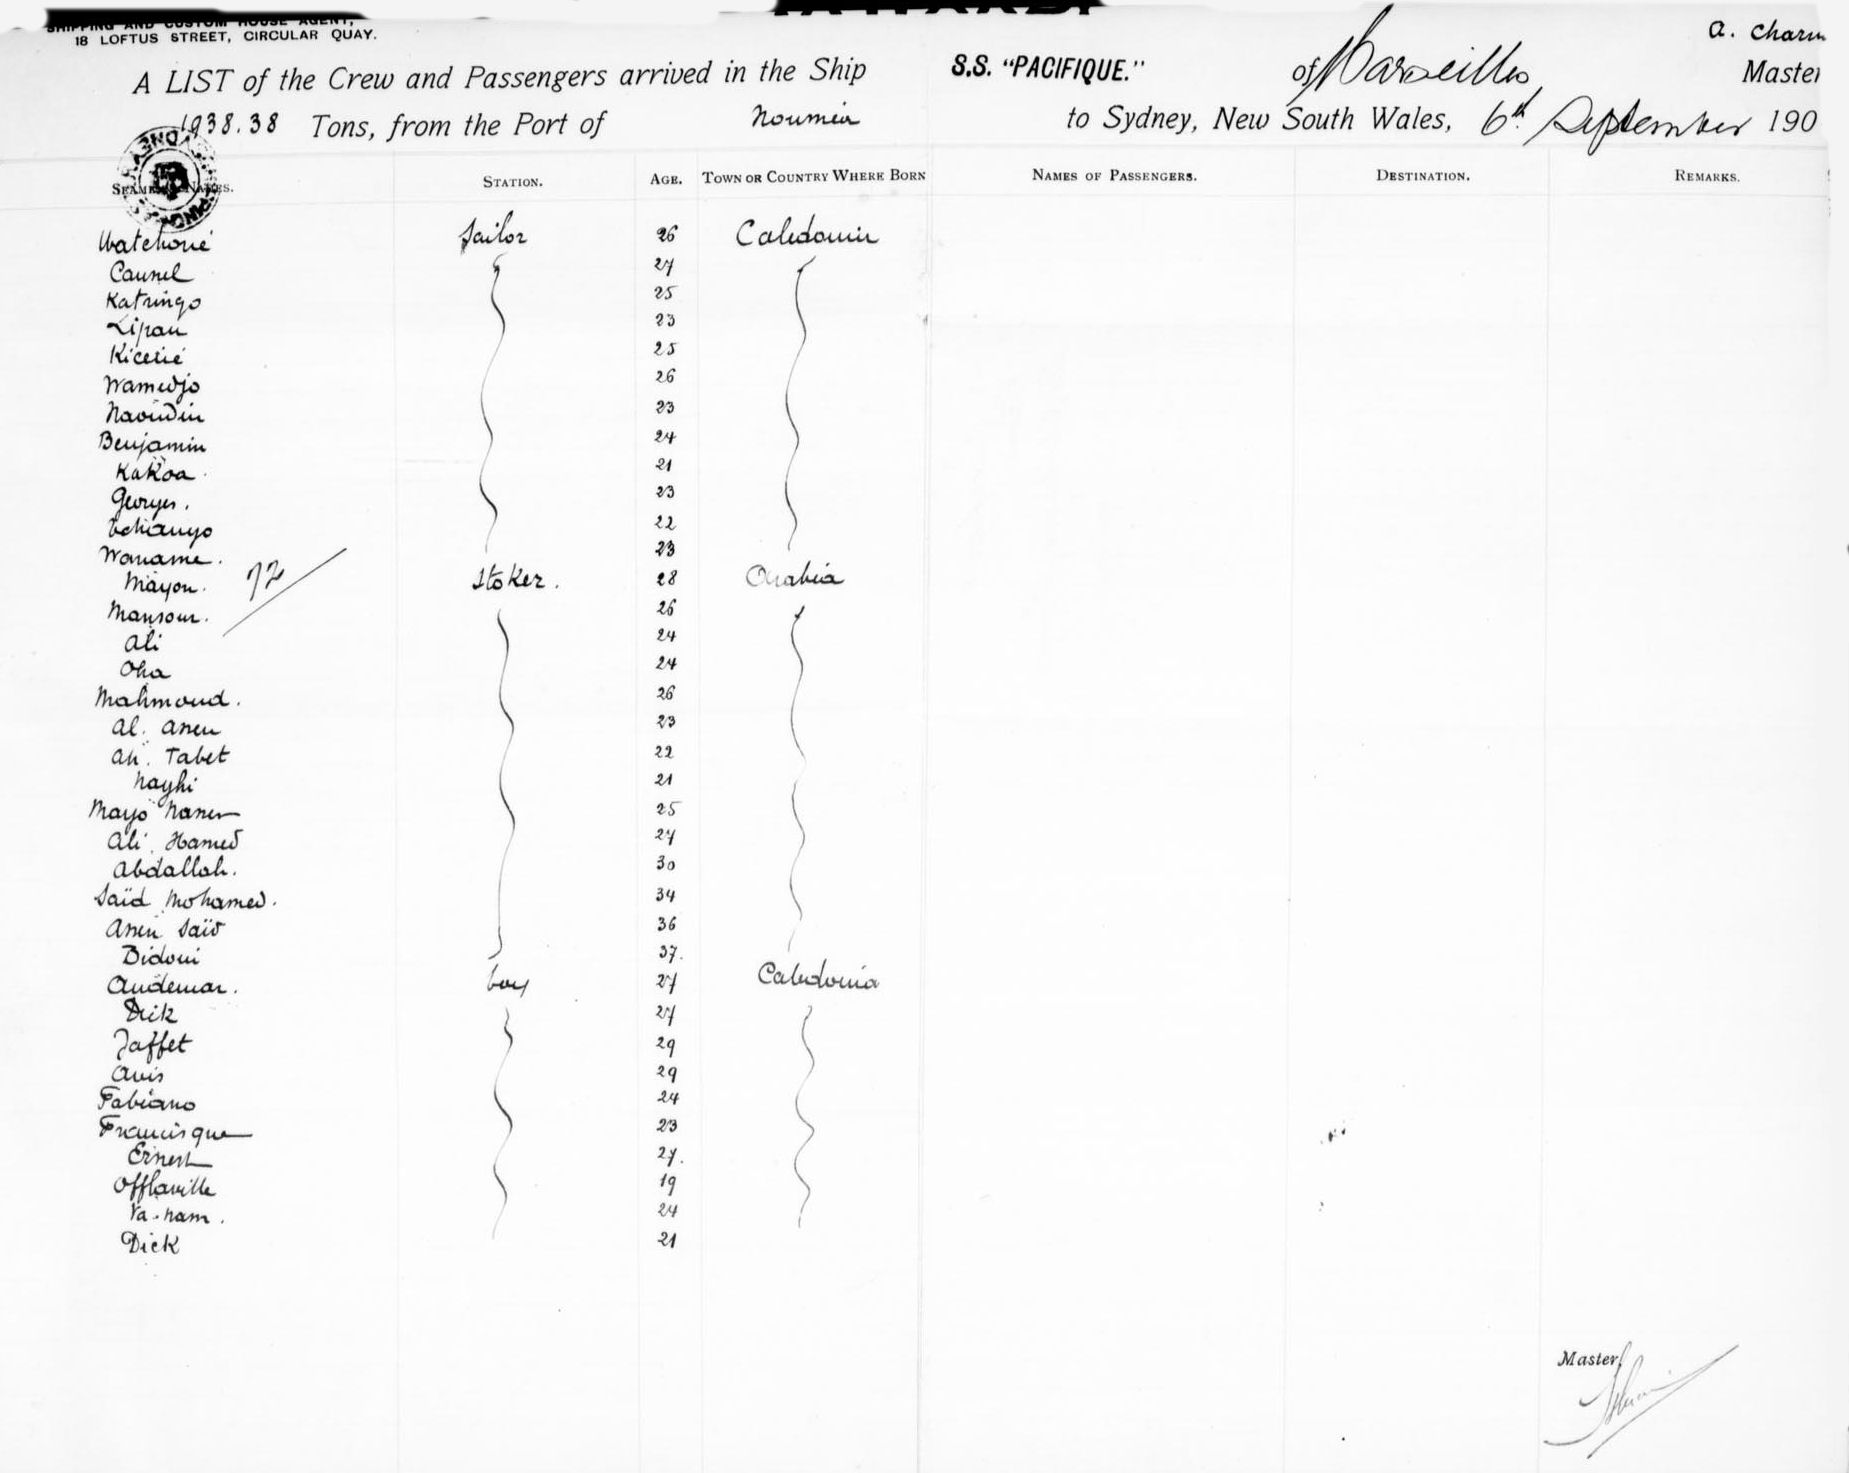 SHIPPING AND CUSTOM HOUSE AGENT,
18 LOFTUS STREET, CIRCULAR QUAY.
a. Charm
A LIST of the Crew and Passengers arrived in the Ship S.S. "PACIFIQUE." of Marseilles, Master
1938.38 Tons, from the Port of Nouméa to Sydney, New South Wales, 6th September 190
SEAMEN'S NAMES. STATION. AGE. TOWN OR COUNTRY WHERE BORN NAMES OF PASSENGERS. DESTINATION. REMARKS.
Watchoué Sailor 26 Caledonia
Caunel 27
Katringo 25
Lipau 23
25
Wamedjo 26
23
Benjamin 24
Kakoa. 21
Georges. 23
22
Waname. 23
Mayou. 72 Stoker. 28 Arabia
Mansour. 26
Ali 24
Oha 24
Mahmoud. 26
Al. Assen 23
Ali. Tabet 22
Nayhi 21
Mayo Nasser 25
Ali. Hamed 27
Abdallah. 30
Saïd Mohamed. 34
Assen Saïd 36
Bidoui 37.
Audemar. boy 27 Caledonia
Dick 27
Jaffet 29
Avis 29
Fabiano 24
Francisque 23
Ernest 27.
Offlaville 19
Va-ham. 24
Dick 21
Master,